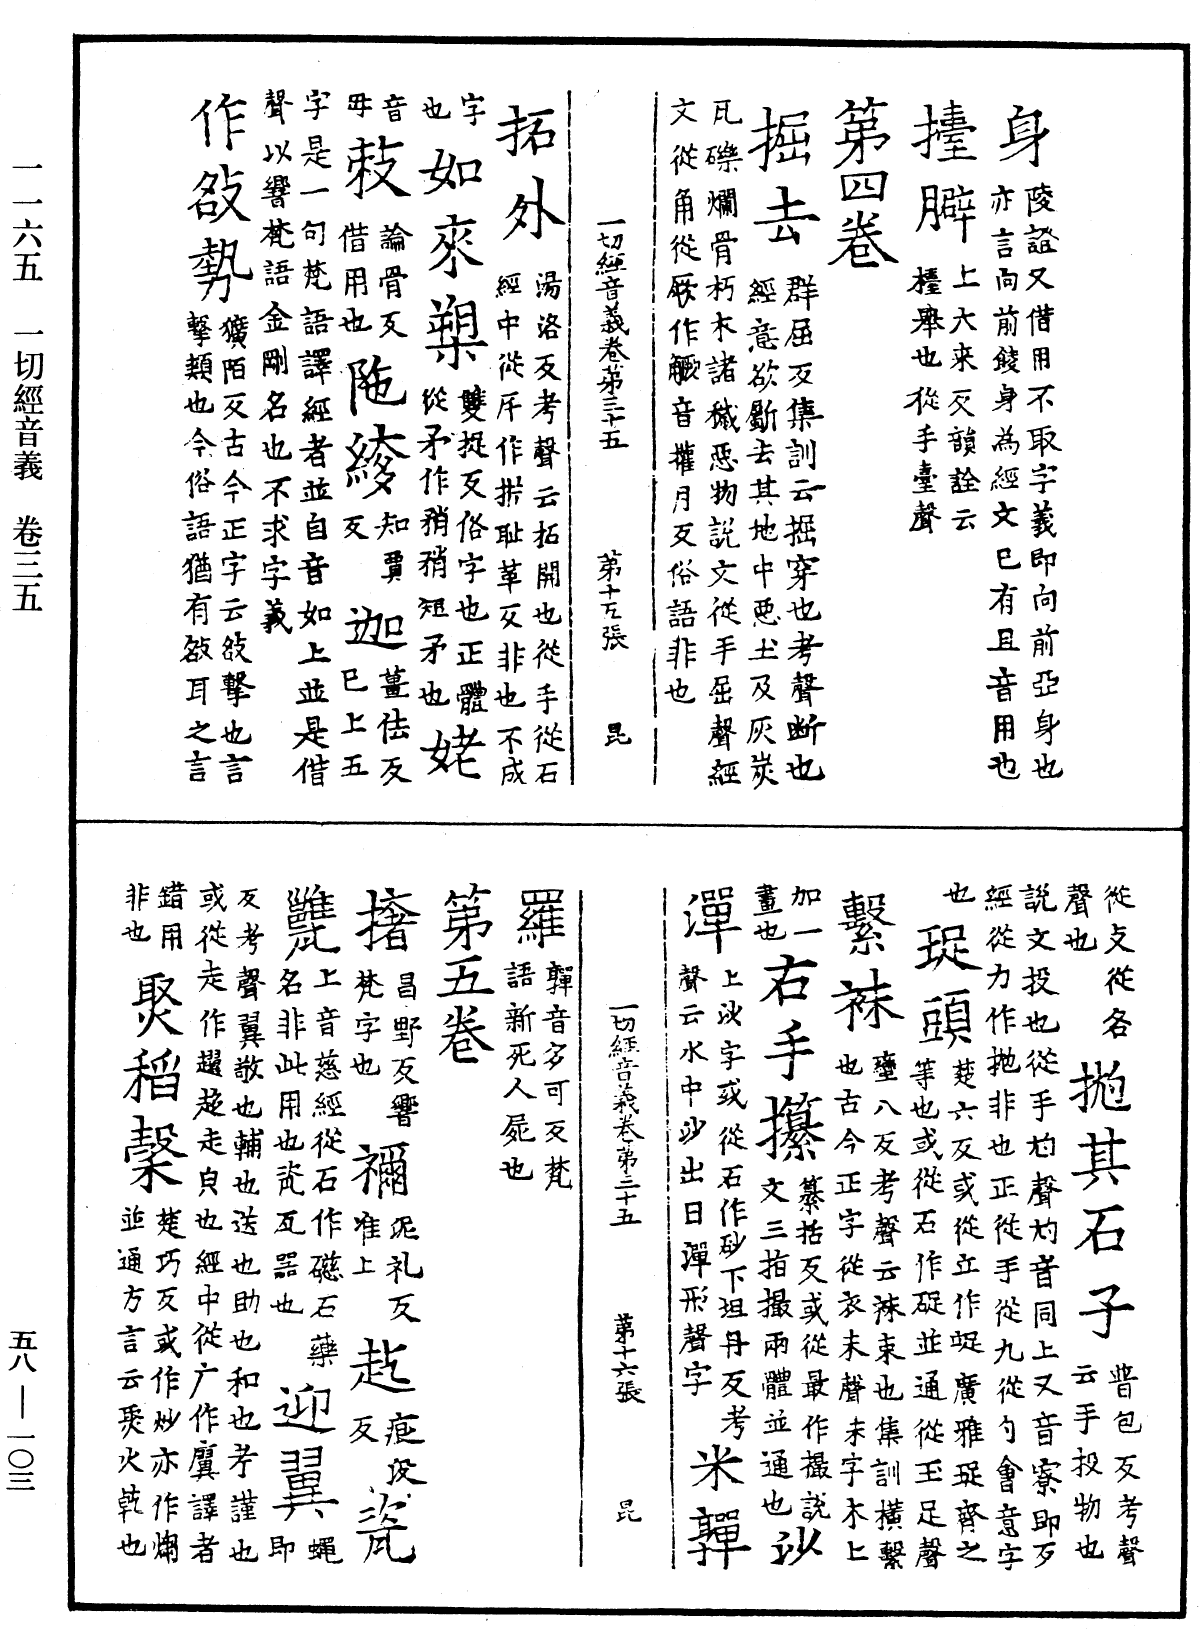 一一六五　一切經音義　卷三五
身陵證又借用不取字義即向前亞身也
亦言向前䠖身為經文已有且音用也
擡𦢊上大来反韻詮云
擡舉也從手臺聲
第四卷
掘去群屈反集訓云掘穿也考聲断也
經意欲斸去其地中惡土及灰炭
瓦礫爛骨朽木諸穢惡物說文從手屈聲經
文從角從厥作觼音攉月反俗語非也
一切經音義卷第三十五　第十五張　昆
拓外湯洛反考聲云拓開也從手從石
經中從斥作㧻耻革反非也不成
字也
如來槊雙捉反俗字也正體
從矛作矟矟短矛也
姥音毋
㪍論骨反
借用也
陁
䋾知賈反
迦薑佉反
已上五
字是一句梵語譯經者並自音如上並是借
聲以響梵語金剛名也不求字義
作敆勢獷陌反古今正字云敆擊也言
擊類也今俗語猶有敆耳之言
從攴從各
聲也
拋其石子普包反考聲
云手投物也
說文投也從手尥聲尥音同上又音寮即歹
經從力作抛非也正從手從九從勺會意字
也
珿頭楚六反或從立作娖廣雅珿齊之
等也或從石作碇並通從玉足聲
繫䘑瓊八反考聲云䘑束也集訓橫繫
也古今正字從衣末聲末字木上
加一
畫也
右手㩯纂括反或從最作撮說
文三指撮兩體並通也
沙
潬上沙字或從石作砂下坦丹反考
聲云水中沙出日潬形聲字
米𩏽
一切經音義卷第三十五　第十六張　昆
羅𩏽音多可反梵
語新死人屍也
第五卷
撦昌野反響
梵字也
禰泥礼反
准上
趂疵沒
反
瓷
甆上音慈經從石作磁石藥
名非此用也瓷瓦器也
迎翼蝿即
反考聲翼敬也輔也送也助也和也考謹也
或從走作趩趍走皃也經中從广作廙譯者
錯用
非也
㷅稻槀楚巧反或作炒亦作爤
並通方言云㷅火乾也
五八—一〇三